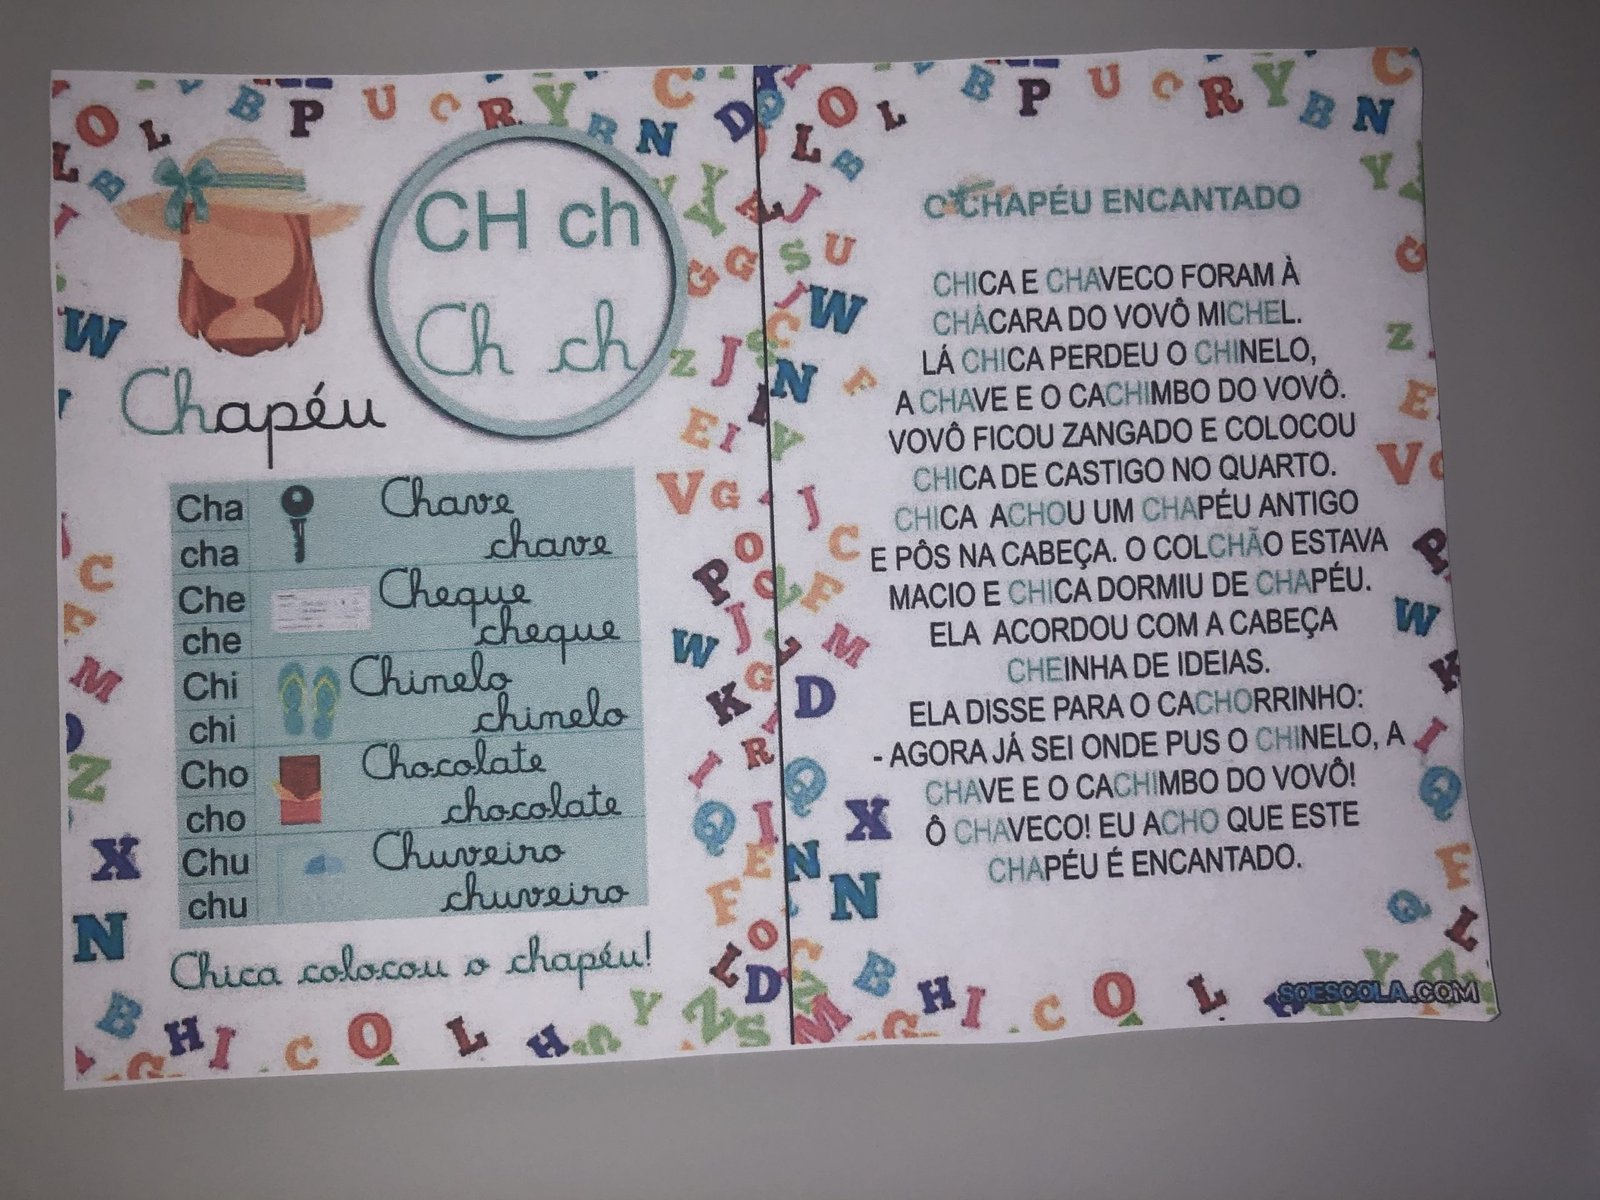 CH ch
Ch ch
Chapéu
Cha
cha
Chave
chave
Che
che
Cheque
cheque
Chi
chi
Chinelo
chinelo
Cho
cho
Chocolate
chocolate
Chu
chu
Chuveiro
chuveiro
Chica colocou o chapéu!
O CHAPÉU ENCANTADO
CHICA E CHAVECO FORAM À
CHÁCARA DO VOVÔ MICHEL.
LÁ CHICA PERDEU O CHINELO,
A CHAVE E O CACHIMBO DO VOVÔ.
VOVÔ FICOU ZANGADO E COLOCOU
CHICA DE CASTIGO NO QUARTO.
CHICA ACHOU UM CHAPÉU ANTIGO
E PÔS NA CABEÇA. O COLCHÃO ESTAVA
MACIO E CHICA DORMIU DE CHAPÉU.
ELA ACORDOU COM A CABEÇA
CHEINHA DE IDEIAS.
ELA DISSE PARA O CACHORRINHO:
- AGORA JÁ SEI ONDE PUS O CHINELO, A
CHAVE E O CACHIMBO DO VOVÔ!
Ô CHAVECO! EU ACHO QUE ESTE
CHAPÉU É ENCANTADO.
SOESCOLA.COM